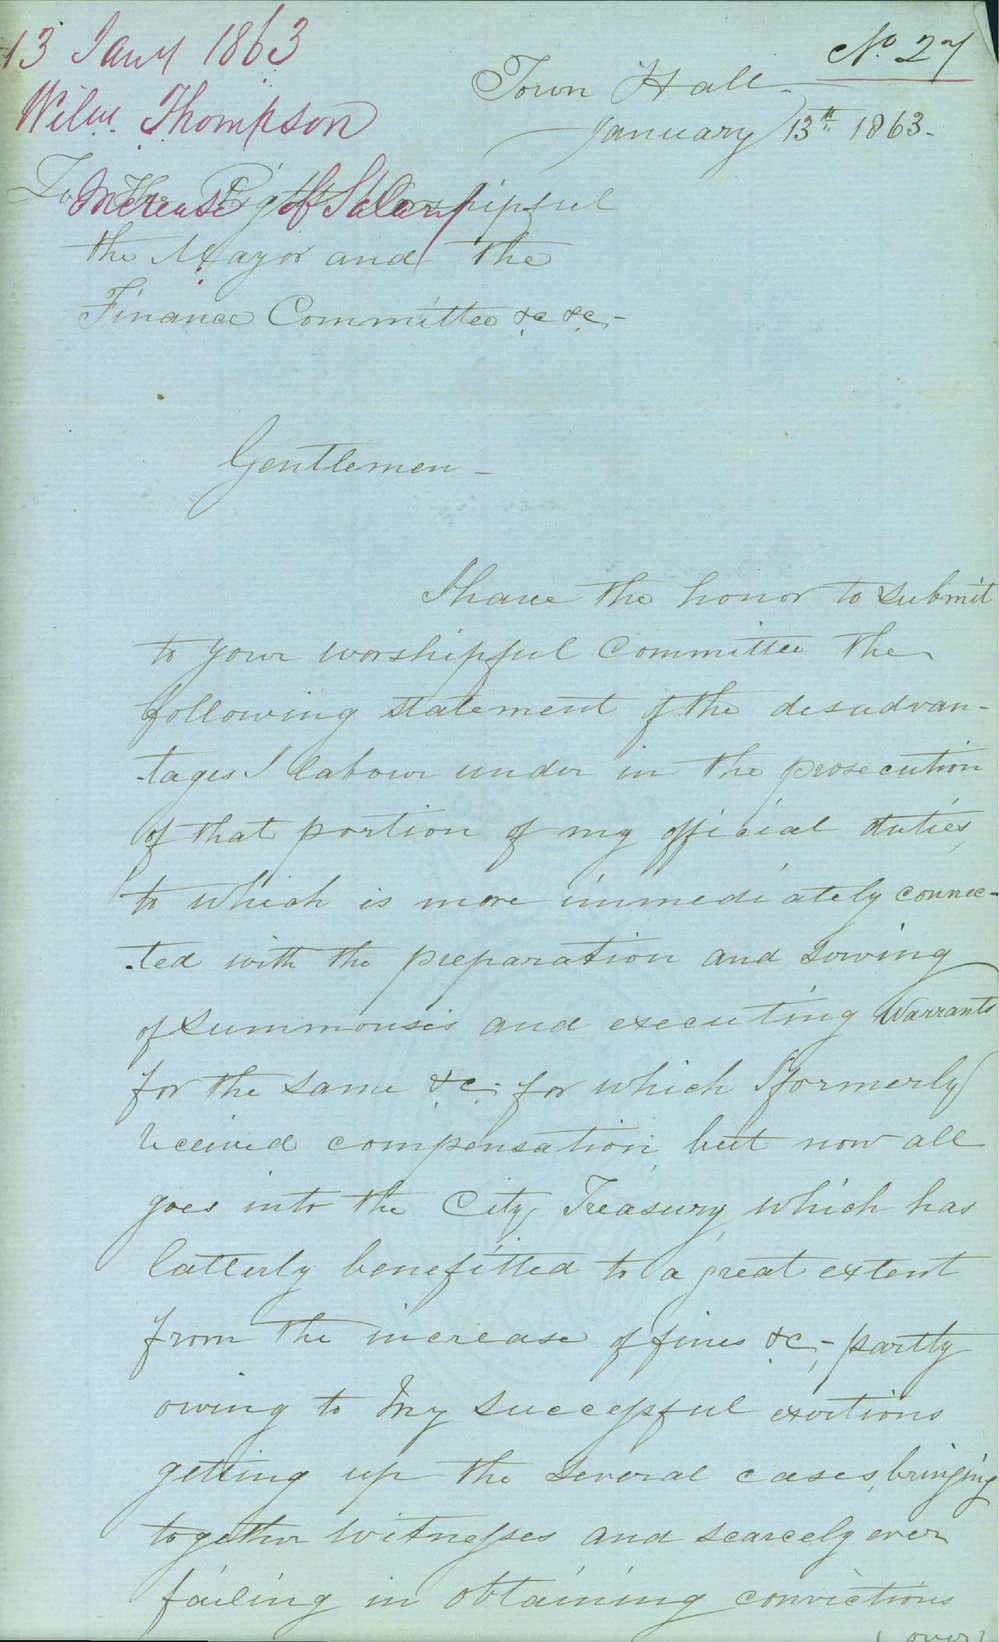 13 Jany 1863
Wilm. Thompson
Increase of Salary
No. 27
Town Hall -
January 13th 1863 -
To The Right Worshipful
the Mayor and the
Finance Committee &c &c -
Gentlemen -
I have the honor to submit
to your worshipful Committee the
following statement of the disadvan-
-tages I labour under in the prosecution
of that portion of my official duties,
to which is more immediately connec-
-ted with the preparation and
of Summonsis and executing Warrants
for the same &c. for which I formerly
received compensation, but now all
goes into the City Treasury, which has
latterly benefitted to a great extent
from the increase of fines &c, - partly
owing to my successful exertions
getting up the several cases, bringing
together witnesses and scarcely ever
failing in obtaining convictions
(over)